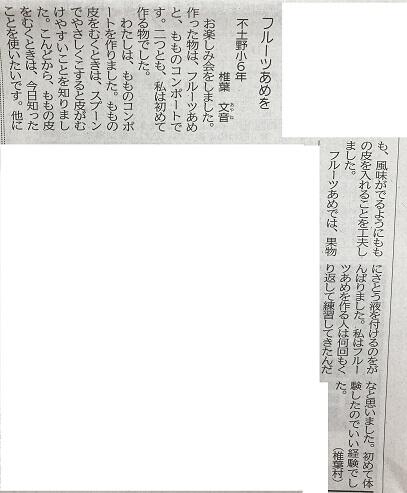 フルーツあめを
不土野小６年
椎葉　文音
あやね
お楽しみ会をしました。
作った物は、フルーツあめ
と、もものコンポートで
す。二つとも、私は初めて
作る物でした。
わたしは、もものコンポ
ートを作りました。ももの
皮をむくときは、スプーン
でやさしくこすると皮がむ
けやすいことを知りまし
た。こんどから、ももの皮
をむくときは、今日知った
ことを使いたいです。他に
も、風味がでるようにもも
の皮を入れることを工夫し
ました。
フルーツあめでは、果物
にさとう液を付けるのをが
んばりました。私はフルー
ツあめを作る人は何回もく
り返して練習してきたんだ
なと思いました。初めて体
験したのでいい経験でし
た。
（椎葉村）